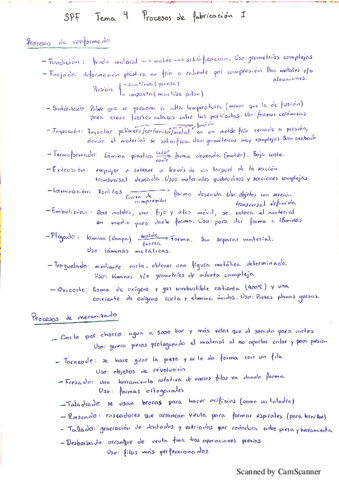 SPF Tema 4 Procesos de fabricación I
Procesos de conformado
- Fundición: fundo material → molde → solidificación. Uso: geometrías complejas
- Forjado: deformación plástica en frío o caliente por compresión. Para metales y/o aleaciones.
Presión
continua (prensa)
impacto (martillo pilón)
- Sinterizado: Polvo que se presiona a alta temperatura (menor que la de fusión)
para crear fuertes enlaces entre las partículas. Uso: formas cerámicas
- Inyección: Inyectar polímero/cerámico/metal en un molde frío cerrado a presión,
donde el material se solidifica. Uso: geometrías muy complejas.
- Termoformado: lámina plástica calor forma deseada (molde). Bajo coste.
- Extrusión: empujar o extraer a través de un troquel de la sección
transversal deseada. Uso: materiales quebradizos y secciones complejas.
- Laminación: Rodillos fuerza de compresión forma deseada. Uso: objetos con sección
transversal definida
- Embutición: Dos moldes, uno fijo y otro móvil, se coloca el material
en medio para darle forma. Uso: para dar forma a láminas
- Plegado: lámina (chapa) molde fuerza Forma. Sin separar material.
Uso: láminas metálicas.
- Troquelado: mediante corte, obtener una figura metálica determinada.
Uso: láminas y/o geometrías de adentro complejo
- Oxicorte: llama de oxígeno y gas combustible calienta (900°C) y una
corriente de oxígeno corta y elimina óxidos. Uso: Piezas planas gruesas.
Procesos de mecanizado
- Corte por chorro: agua a 5000 bar y más veloz que el sonido para cortes
Uso: genera piezas protegiendo el material al no aportar calor y poca presión
- Torneado: se hace girar la pieza y se le da forma con un filo.
Uso: objetos de revolución
- Fresado: una herramienta rotativa de varios filos va dando forma
Uso: formas ortogonales
- Taladrado: se usan brocas para hacer orificios (como un taladro)
- Roscado: roscadores que arrancan viruta para formar espirales (para tornillos)
- Tallado: generación de dentados y estriados por rodadura entre pieza y herramienta
- Desbarbado: arranque de viruta fina tras operaciones previas.
Uso: filos más perfeccionados.
Scanned by CamScanner